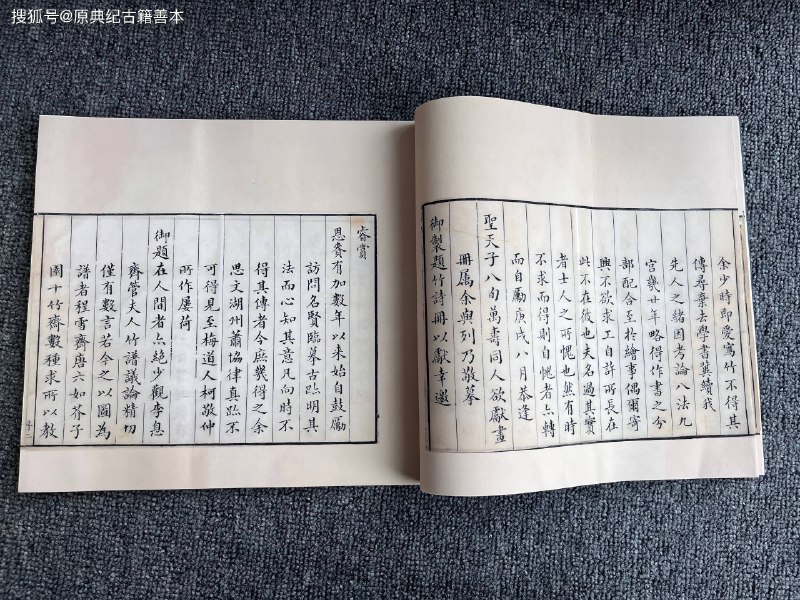 搜狐号@原典纪古籍善本
余少時即愛寫竹不得其
傳尋棄去學書冀續我
先人之緒因考論八法九
宮幾廿年略得作書之分
部配合至於繪事偶爾寄
興不欲求工自許所長在
此不在彼也夫名過其實
者士人之所愧也然有時
不求而得則自愧者亦轉
而自勵庚戌八月恭逢
聖天子八旬萬壽同人欲獻畫
冊屬余與列乃敬摹
御製題竹詩冊以獻幸邀
睿賞
恩賚有加數年以來始自鼓勵
訪問名賢臨摹古跡明其
法而心知其意凡向時不
得其傳者今庶幾得之余
思文湖州蕭協律真跡不
可得見至梅道人柯敬仲
所作屢荷
御題在人間者亦絕少觀李息
齋管夫人竹譜議論精切
僅有數言若今之以圖為
譜者程雪齋唐六如芥子
園十竹齋數種求所以教